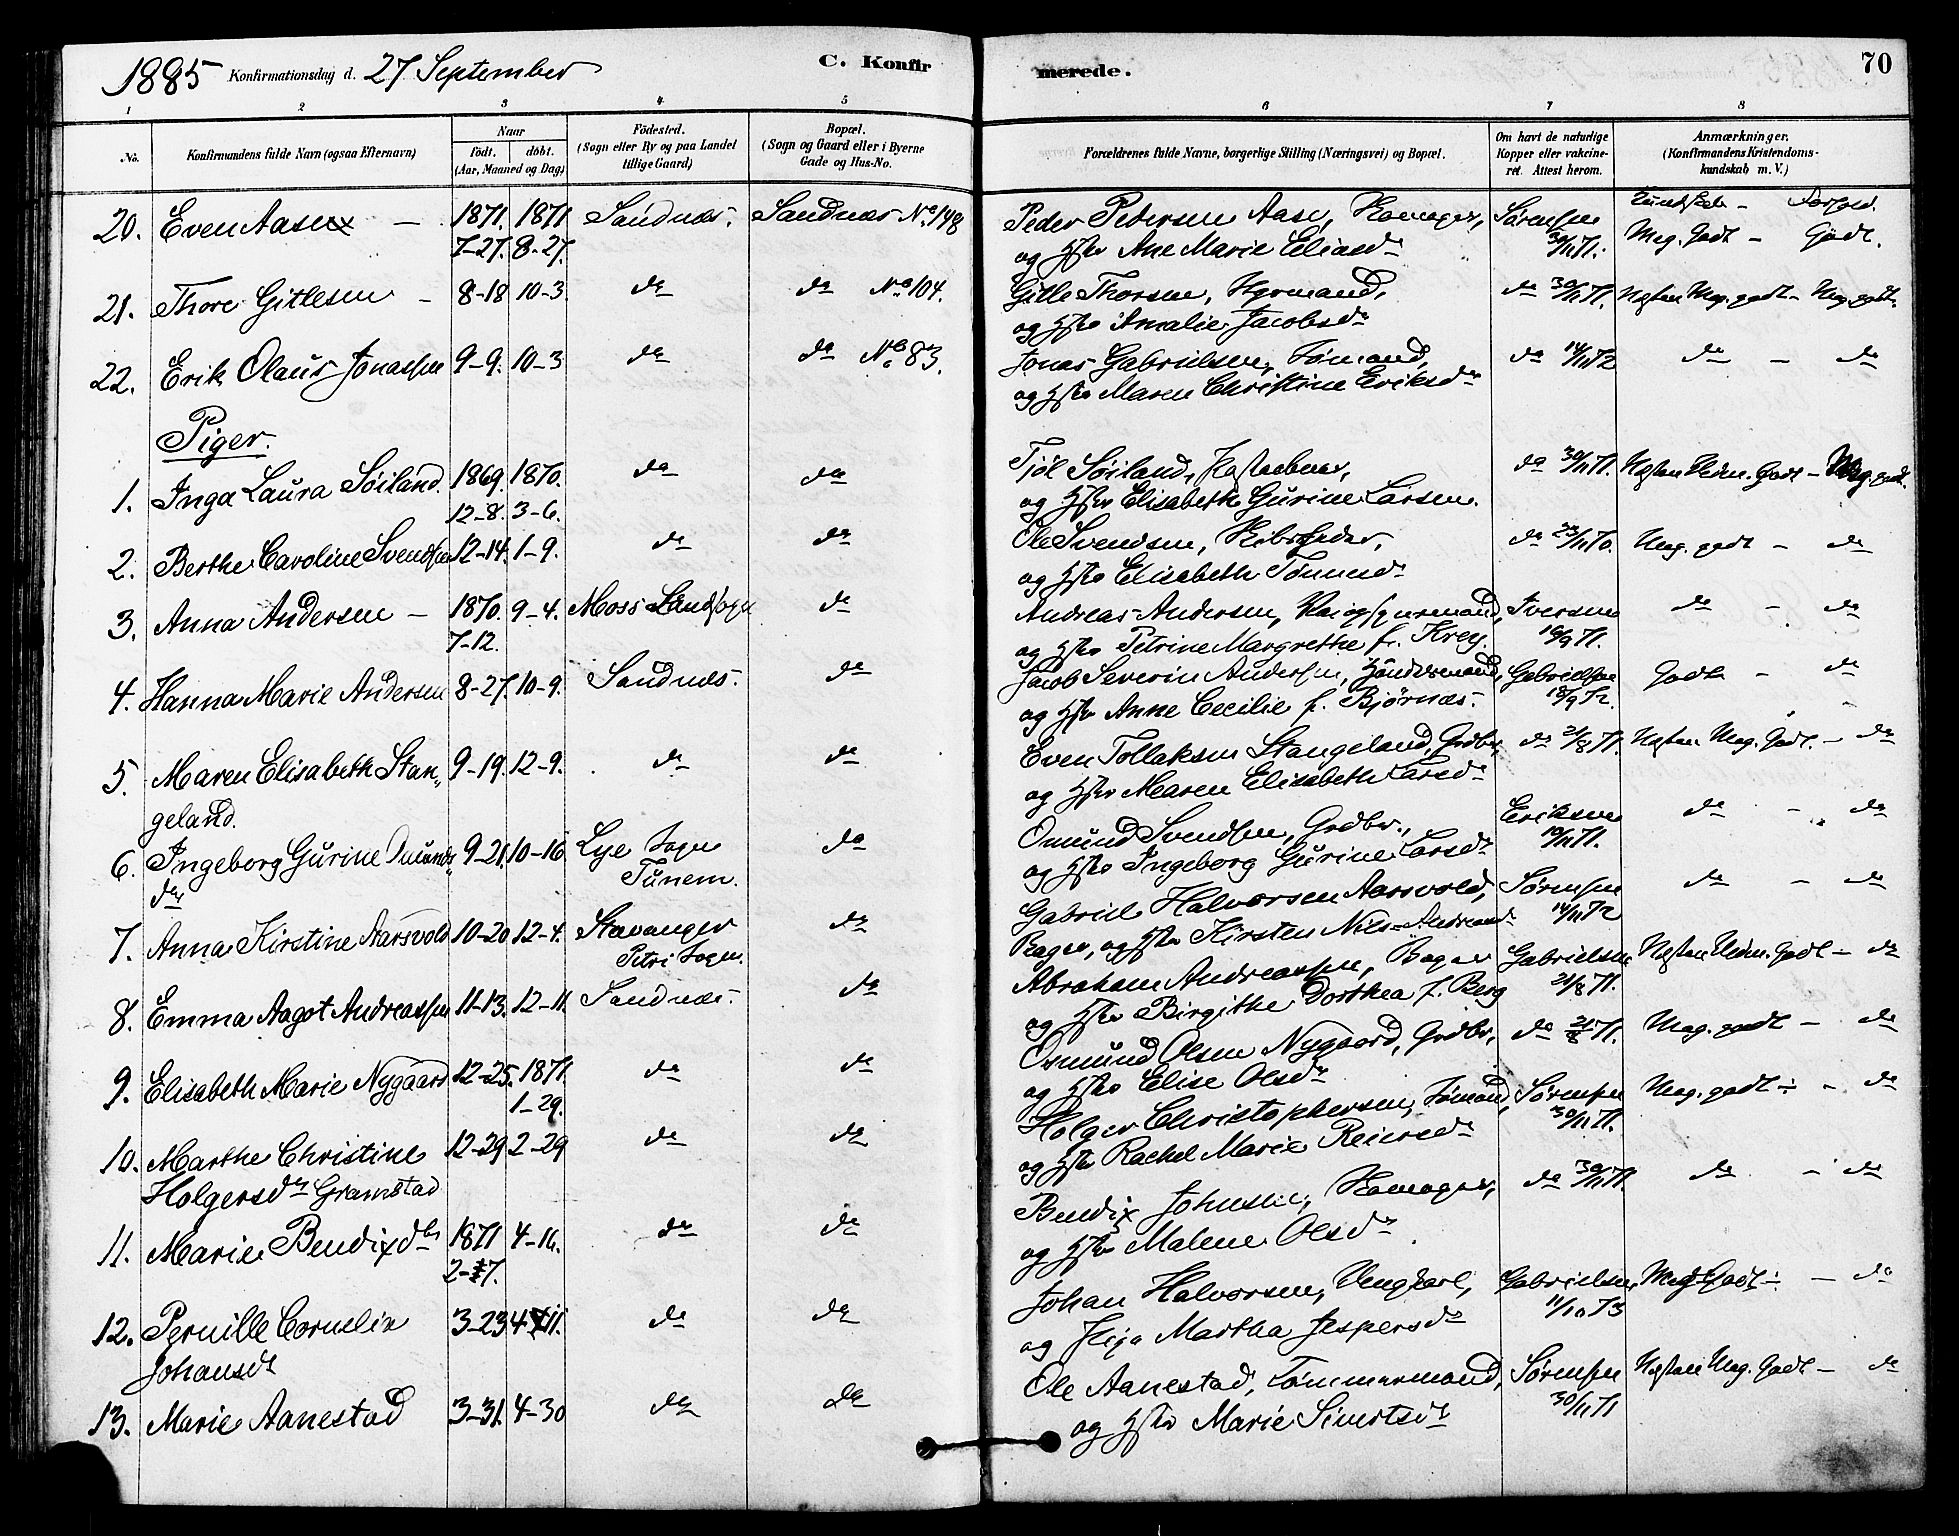 1885 Konfirmationsdag d. 27 September C. Konfirmerede. 70
1 2 3 4 5 6 7 8
No. Konfirmandens fulde Navn (ogsaa Efternavn) Naar født. døbt. (Aar, Maaned og Dag) Fødested. (Sogn eller By og paa Landet tillige Gaard) Bopæl. (Sogn og Gaard eller i Byerne Gade og Hus-No. Forældrenes fulde Navne, borgerlige Stilling (Næringsvei) og Bopæl. Om havt de naturlige Kopper eller vakcineret. Attest herom. Anmærkninger. (Konfirmandens Kristendomskundskab m. V.)
20. Even Aasen — 1871. 1871 Sandnæs. Sandnæs No 148 Peder Pedersen Aase, Sørensen Kundskab —
7-27. 8-27. og Hstr Ane Marie Eliasdr 30/11 71. Meg. Godt — Godt.
21. Thore Gitlesen — 8-18 10-3. do do No 104. Gitle Thorsen, do 30/11 71. Næsten Meg. godt — Meg. godt.
og Hstr Amalie Jacobsdr
22. Erik Olaus Jonassen 9-9. 10-3 do do No 83. Jonas Gabrielsen, Sømand, do 14/11 72 do — do
og Hstr Maren Christine Eriksdr
Piger.
1. Inga Laura Söiland. 1869. 1870. do do Tjöl Söiland, do 30/11 71. Næsten Udm. Godt — Meg. godt.
12-8. 3-6. og Hstr Elisabeth Gurine Larsen.
2. Berthe Caroline Svendsen 12-14. 1-9. do do Ole Svendsen, do Meg. godt — do
og Hstr Elisabeth Tönnesdr
3. Anna Andersen — 1870. 9-4. Moss Landsogn do Andreas Andersen, Iversen do — do
7-12. og Hstr Petrine Margrethe f. Krey. 71.
4. Hanna Marie Andersen 8-27. 10-9. Sandnæs. do Jacob Severin Andersen, Gabrielsen Godt — do
og Hstr Anne Cecilie f. Bjørnæs. 18/9 72.
5. Maren Elisabeth Stan, 9-19. 12-9. do do Even Tollaksen Stangeland, Grdbr, do 21/8 71. Næsten Meg. Godt. — do
geland. og Hstr Maren Elisabeth Larsdr
6. Ingeborg Gurine Omunds 9-21. 10-16 Lye Sogn do Omund Svendsen, Grdbr., Eriksen do — do
dr Tunem. og Hstr Ingeborg Gurine Larsdr 71.
7. Anna Kirstine Aarsvold 10-20 12-4. Stavanger do Gabriel Halvorsen Aarsvold, Sørensen do — do
Petri Sogn. Bager, og Hstr Kirsten 14/11 72
8. Emma Aagot Andreassen 11-13. 12-11. Sandnæs. do Abraham Andreassen, Bager Gabrielsen Næsten Udm. Godt — do
og Hstr Birgithe Dorthea f. Berg 21/8 71.
9. Elisabeth Marie Nygaard 12-25. 1871. do do Osmund Olsen Nygaard, Grdbr, do 21/8 71. Meg. godt — do
1-29. og Hstr Elise Olsdr
10. Marthe Christine 12-29 2-29 do do Holger Christophersen, Sømand, Sørensen Meg. godt — do
Holgersdr Gramstad og Hstr Rachel Marie Reiersdr 30/11 71.
11. Marie Bendixdtr 1871 4-16. do do Bendix Johnsen, do 30/11 71. do — do
2-17. og Hstr Malene Olsdr
12. Pernille Cornelia 3-23 4-11. do do Johan Halvorsen, Ungkarl, Gabrielsen Meg. Godt — do
Johansdr og Pige Martha Jespersdr 11/10 73
13. Marie Aanestad 3-31. 4-30 do do Ole Aanestad, Tømmermand, Sørensen Næsten Meg. Godt — do
og Hstr Marie Simonsdr 30/11 71